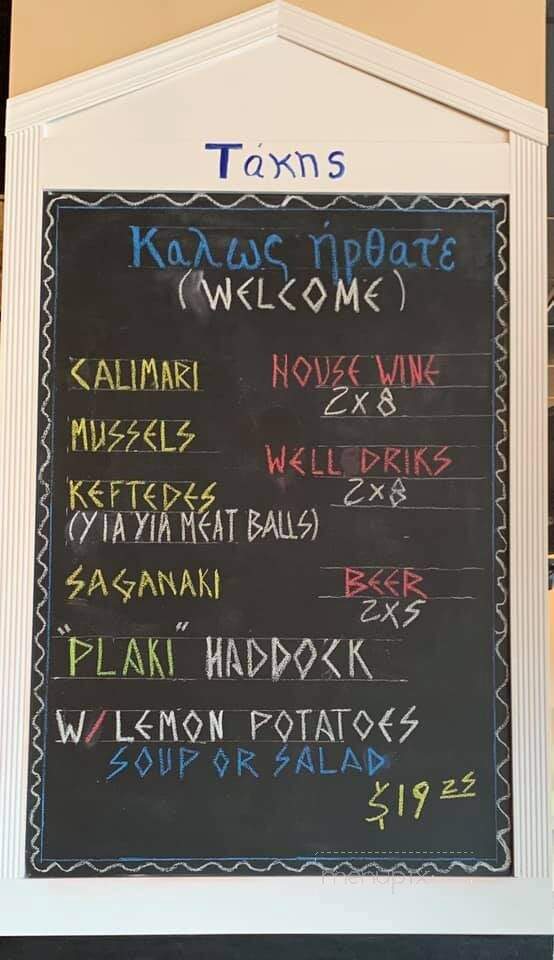 Τάκης
Καλως ήρθατε
(WELCOME)
CALIMARI
MUSSELS
KEFTEDES
(YIA YIA MEAT BALLS)
SAGANAKI
HOUSE WINE
2x8
WELL DRIKS
2x8
BEER
2x5
"PLAKI" HADDOCK
W/LEMON POTATOES
SOUP OR SALAD
$19 25
menupix